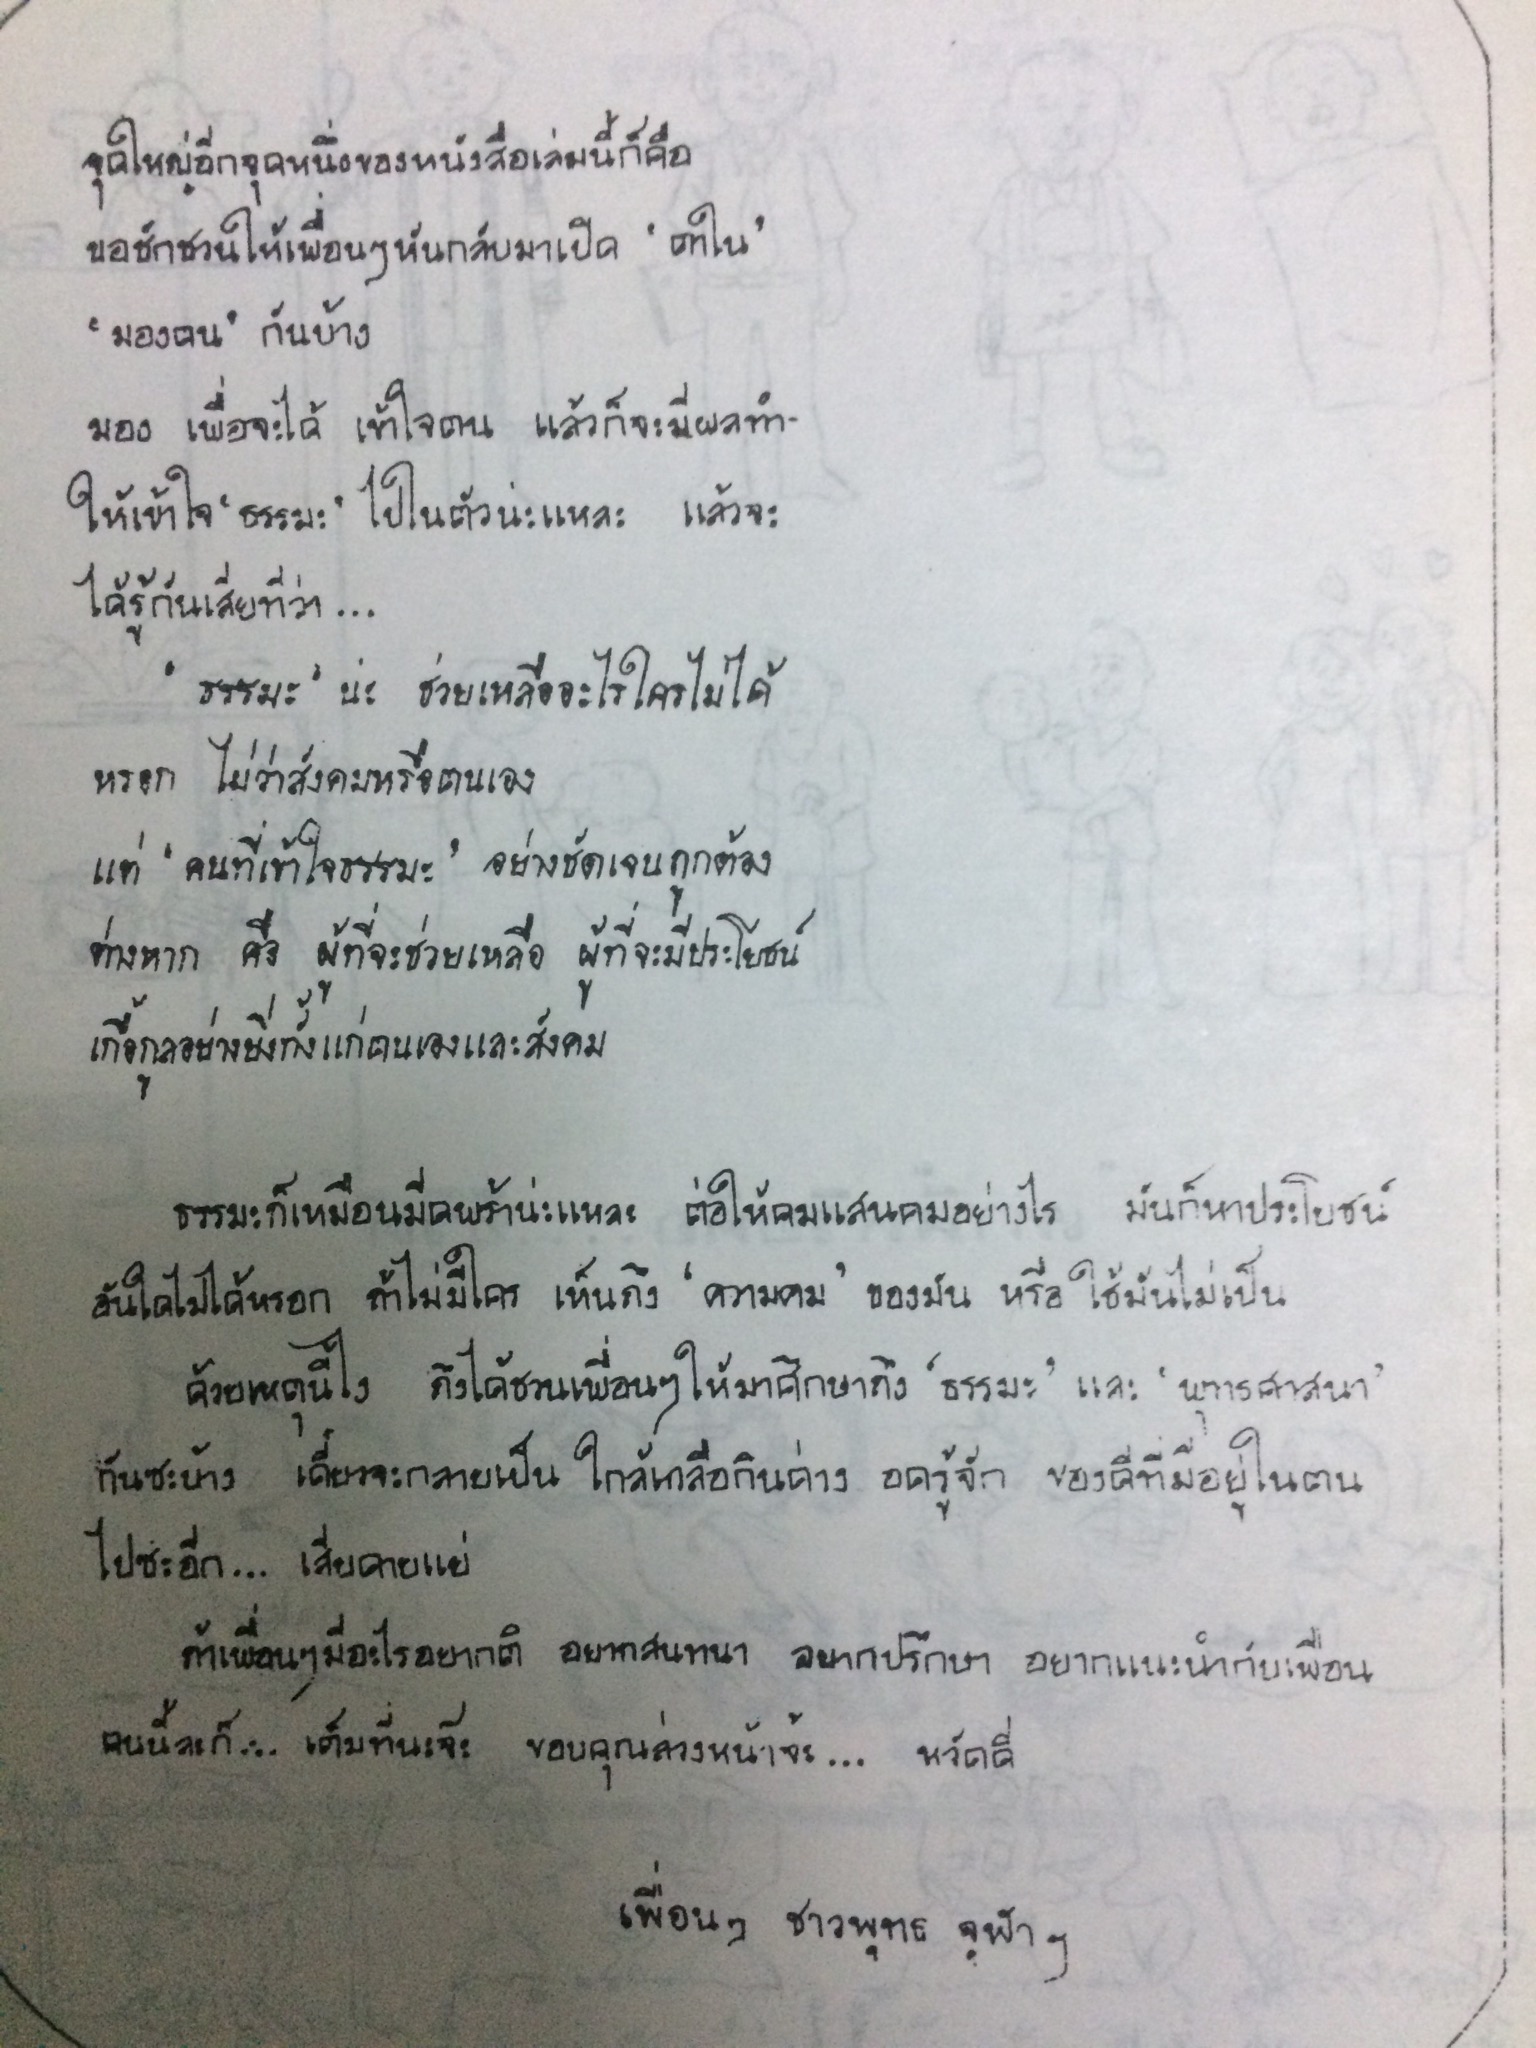 จุดใหญ่อีกจุดหนึ่งของหนังสือเล่มนี้ก็คือ
ขอชักชวนให้เพื่อนๆหันกลับมาเปิด 'ตาใน'
'มองตน' กันบ้าง
มอง เพื่อจะได้ เข้าใจตน แล้วก็จะมีผลทำ-
ให้เข้าใจ 'ธรรมะ' ไปในตัวน่ะแหละ แล้วจะ
ได้รู้กันเสียทีว่า...
'ธรรมะ' น่ะ ช่วยเหลืออะไรใครไม่ได้
หรอก ไม่ว่าสังคมหรือตนเอง
แต่ 'คนที่เข้าใจธรรมะ' อย่างชัดเจนถูกต้อง
ต่างหาก คือ ผู้ที่จะช่วยเหลือ ผู้ที่จะมีประโยชน์
เกื้อกูลอย่างยิ่งทั้งแก่ตนเองและสังคม
ธรรมะก็เหมือนมีดพร้าน่ะแหละ ต่อให้คมแสนคมอย่างไร มันก็หาประโยชน์
อันใดไม่ได้หรอก ถ้าไม่มีใคร เห็นถึง 'ความคม' ของมัน หรือ ใช้มันไม่เป็น
ด้วยเหตุนี้ไง ถึงได้ชวนเพื่อนๆให้มาศึกษาถึง 'ธรรมะ' และ 'พุทธศาสนา'
กันซะบ้าง เดี๋ยวจะกลายเป็น ใกล้เกลือกินด่าง อดรู้จัก ของดีที่มีอยู่ในตน
ไปซะอีก... เสียดายแย่
ถ้าเพื่อนๆมีอะไรอยากติ อยากสนทนา อยากปรึกษา อยากแนะนำกับเพื่อน
คนนี้ละก็... เต็มที่นะจ๊ะ ขอบคุณล่วงหน้าจ้ะ... หวัดดี
เพื่อนๆ ชาวพุทธ จุฬาฯ